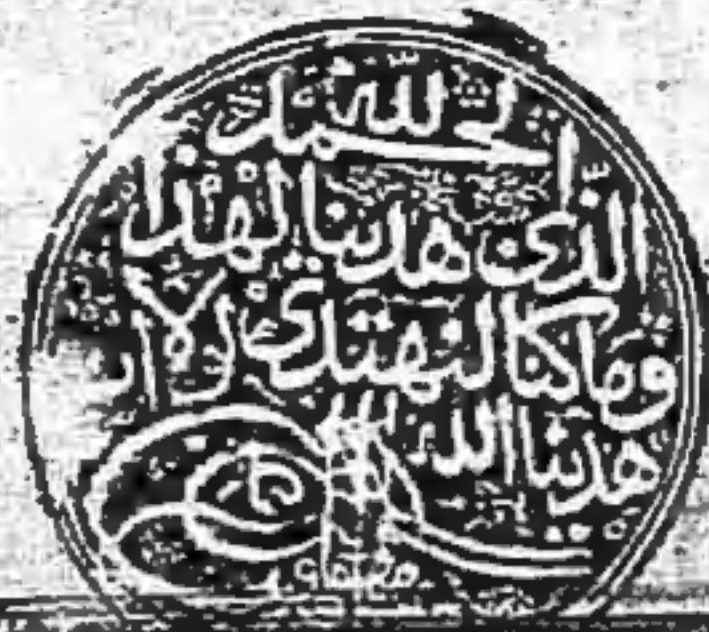 الحمد لله
الذى هدينا لهذا
وما كنا لنهتدى لولا أن
هدينا الله